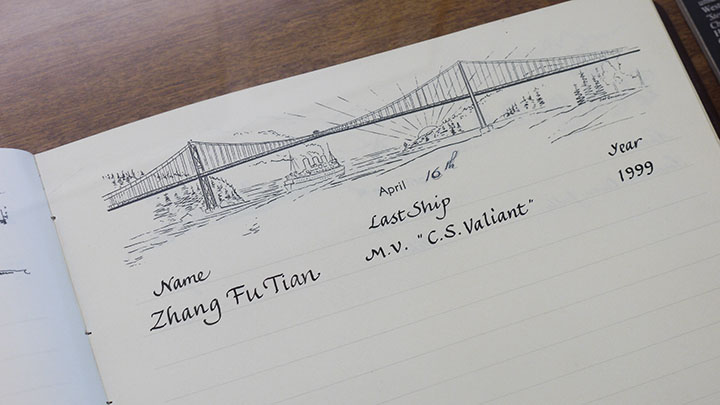 April 16th
Name Last Ship Year
Zhang Fu Tian M.V. "C.S. Valiant" 1999